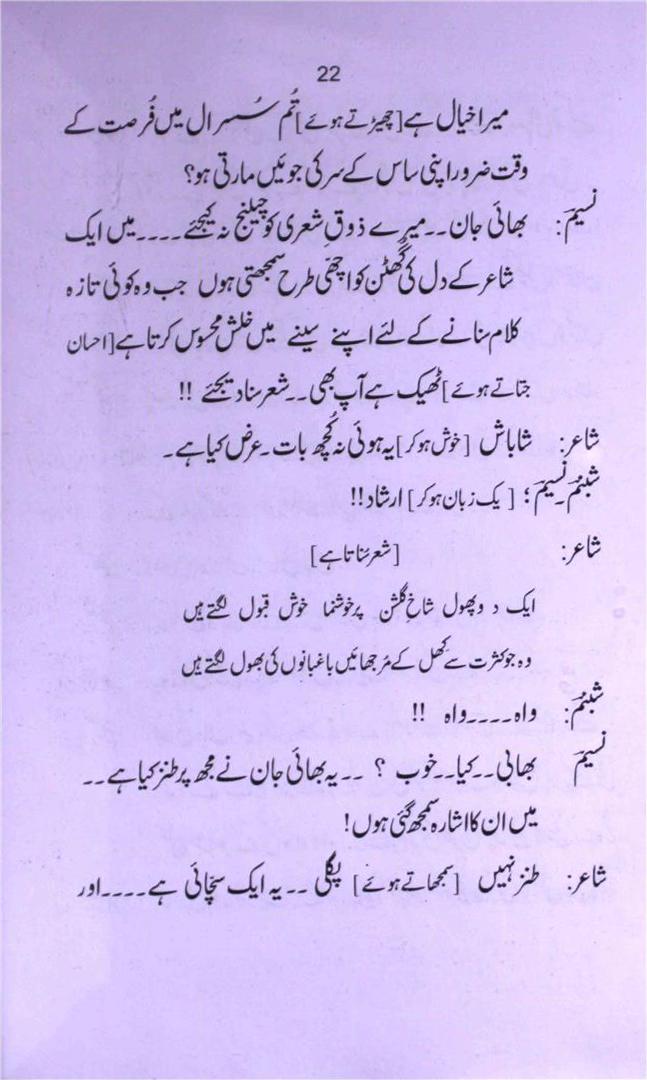 22
میرا خیال ہے [چھیڑتے ہوئے] تُم سُسرال میں فُرصت کے
وقت ضرور اپنی ساس کے سر کی جوئیں مارتی ہو؟
نسیم: بھائی جان۔۔میرے ذوقِ شعری کو چیلنج نہ کیجئے۔۔۔۔میں ایک
شاعر کے دل کی گُھٹن کو اچھّی طرح سمجھتی ہوں جب وہ کوئی تازہ
کلام سنانے کے لئے اپنے سینے میں خلش محسوس کرتا ہے [احسان
جتاتے ہوئے] ٹھیک ہے آپ بھی۔۔شعر سنا دیجئے !!
شاعر: شاباش [خوش ہو کر] یہ ہوئی نہ کُچھ بات۔عرض کیا ہے۔
شبنم۔نسیم؛ [یک زبان ہو کر] ارشاد!!
شاعر: [شعر سُناتا ہے]
ایک دو پھول شاخِ گلشن پر خوشنما خوش قبول لگتے ہیں
وہ جو کثرت سے کِھل کے مُرجھائیں باغبانوں کی بھول لگتے ہیں
شبنم: واہ۔۔۔۔واہ !!
نسیم بھابی۔۔کیا۔۔خوب ؟ ۔۔یہ بھائی جان نے مجھ پر طنز کیا ہے۔۔
میں ان کا اشارہ سمجھ گئی ہوں!
شاعر: طنز نہیں [سمجھاتے ہوئے] پگلی۔۔یہ ایک سچّائی ہے۔۔۔۔اور